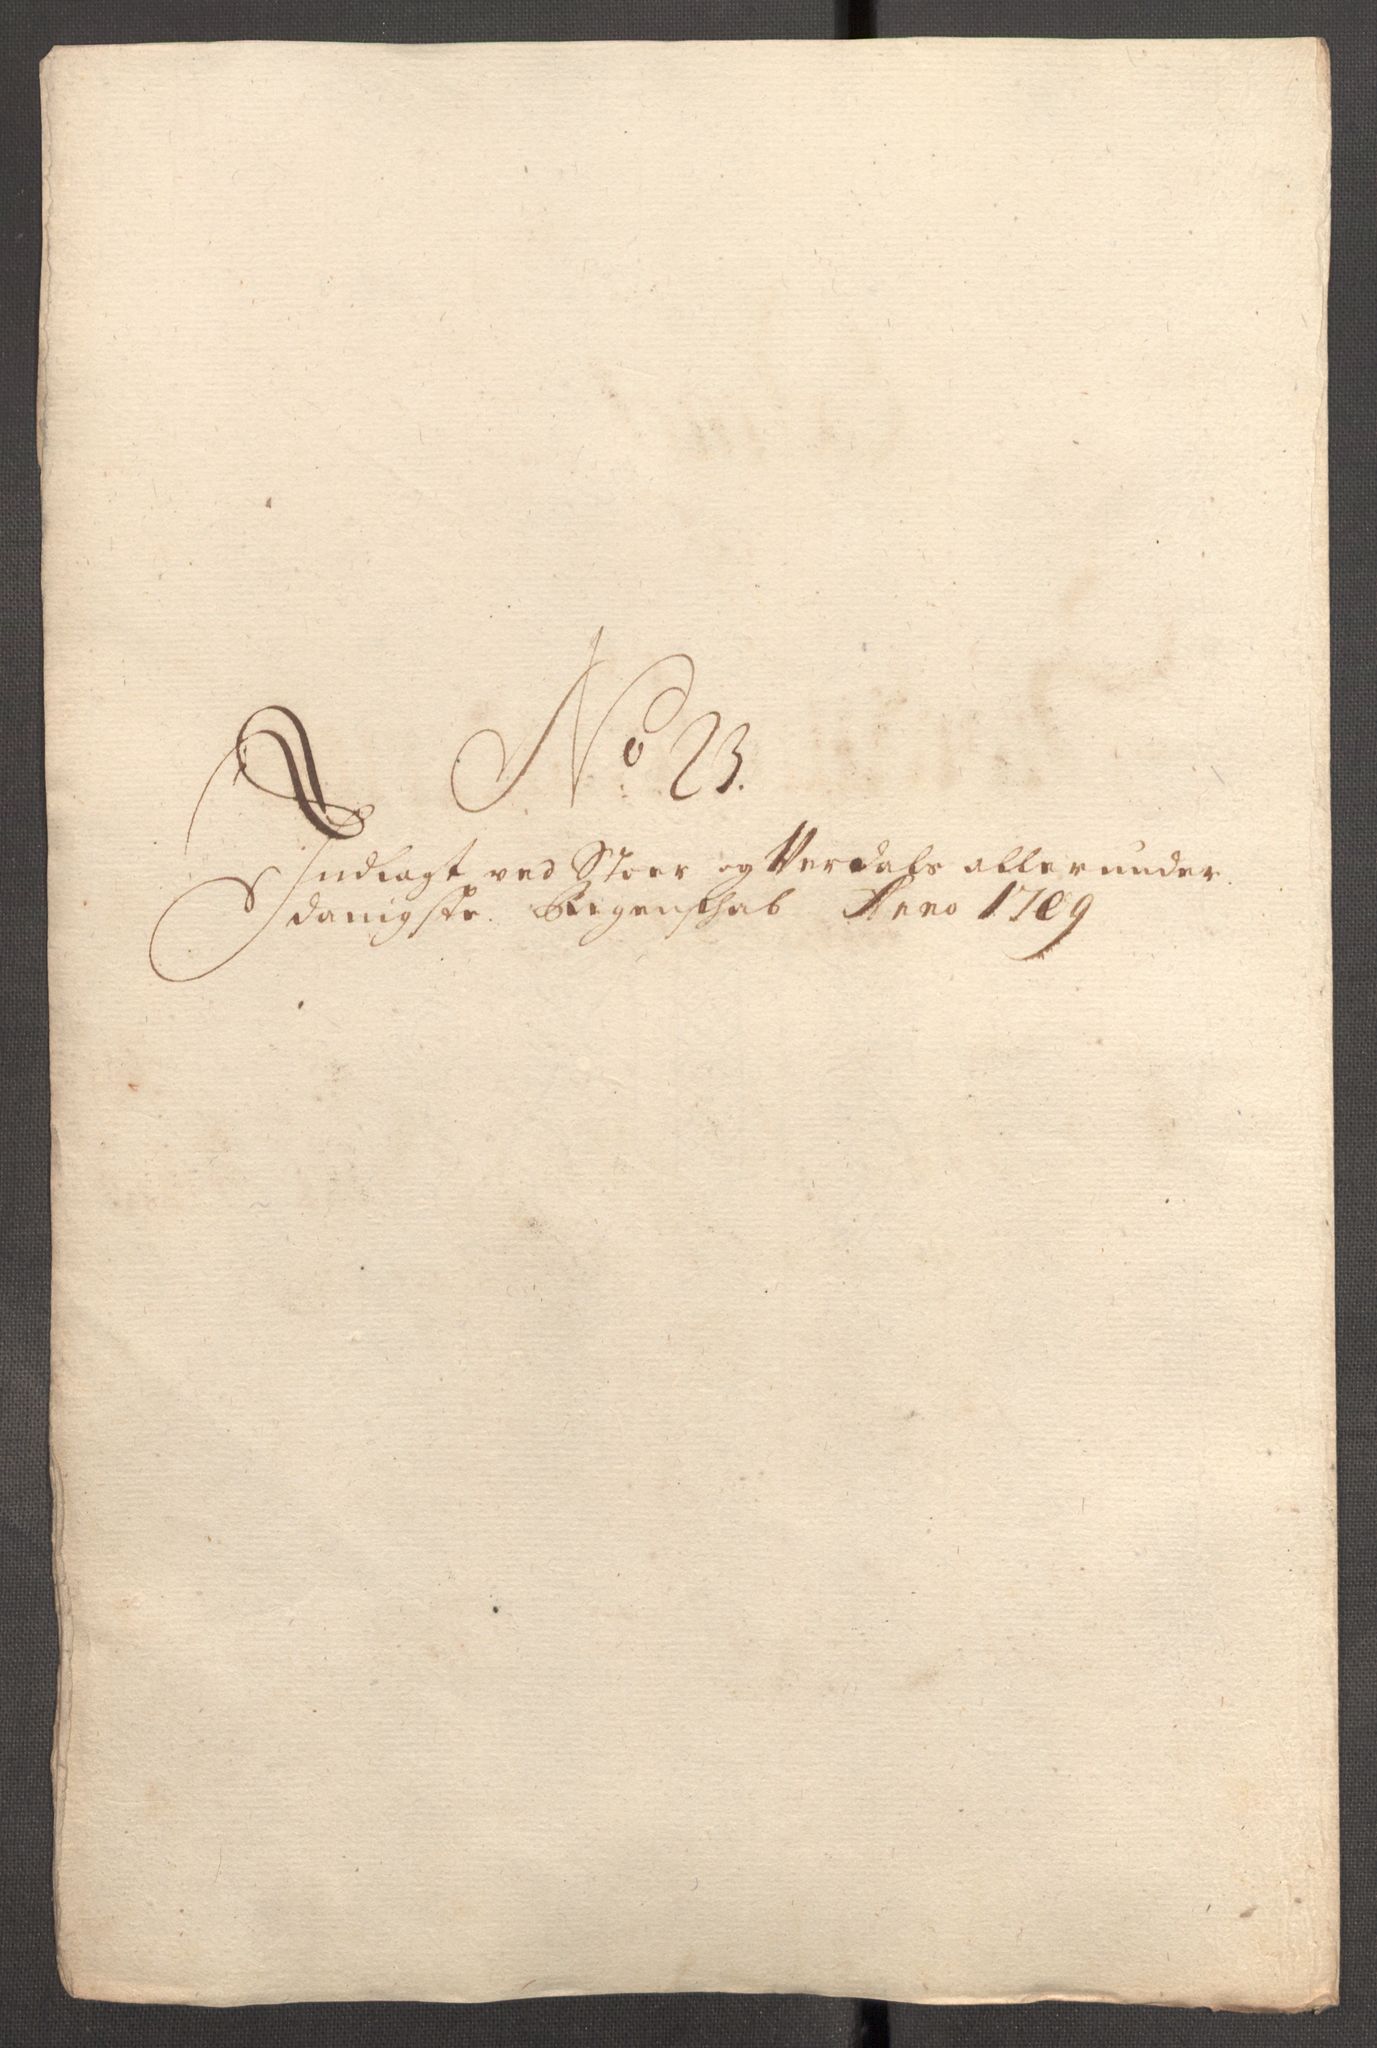 No 23.
Indlagt ved Stoer og Verdals allerunder
danigste Regenschab Anno 1709